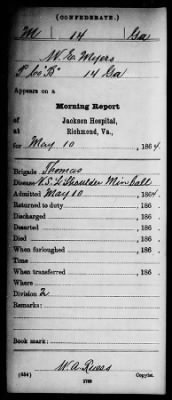 (CONFEDERATE.)
M 14 Ga
W. E. Myers
P Co "B" 14 Ga
Appears on a
Morning Report
of Jackson Hospital,
Richmond, Va.,
for May 10, 1864.
Brigade Thomas
Disease V.S. L Shoulder Minball
Admitted May 10, 1864.
Returned to duty, 186
Discharged, 186
Deserted, 186
Died, 186
When furloughed, 186
Time
When transferred, 186
Where
Division 2
Remarks:
Book mark:
W. A. Reess
Copyist.